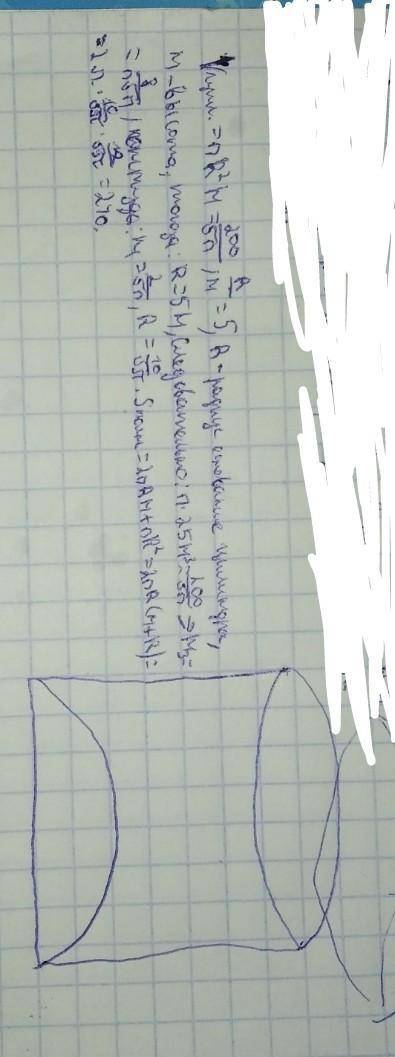 Vцилин. = πR²H = 200/√π, R/H = 5, R - радиус основание цилиндра,
H - высота, тогда: R = 5H, следовательно: π · 25H³ = 200/√π ⇒ H³ =
= 8/π√π, потому: H = 2/√π, R = 10/√π. Sполн = 2πRH + πR² = 2πR(H+R) =
= 2π · 10/√π · 12/√π = 240.